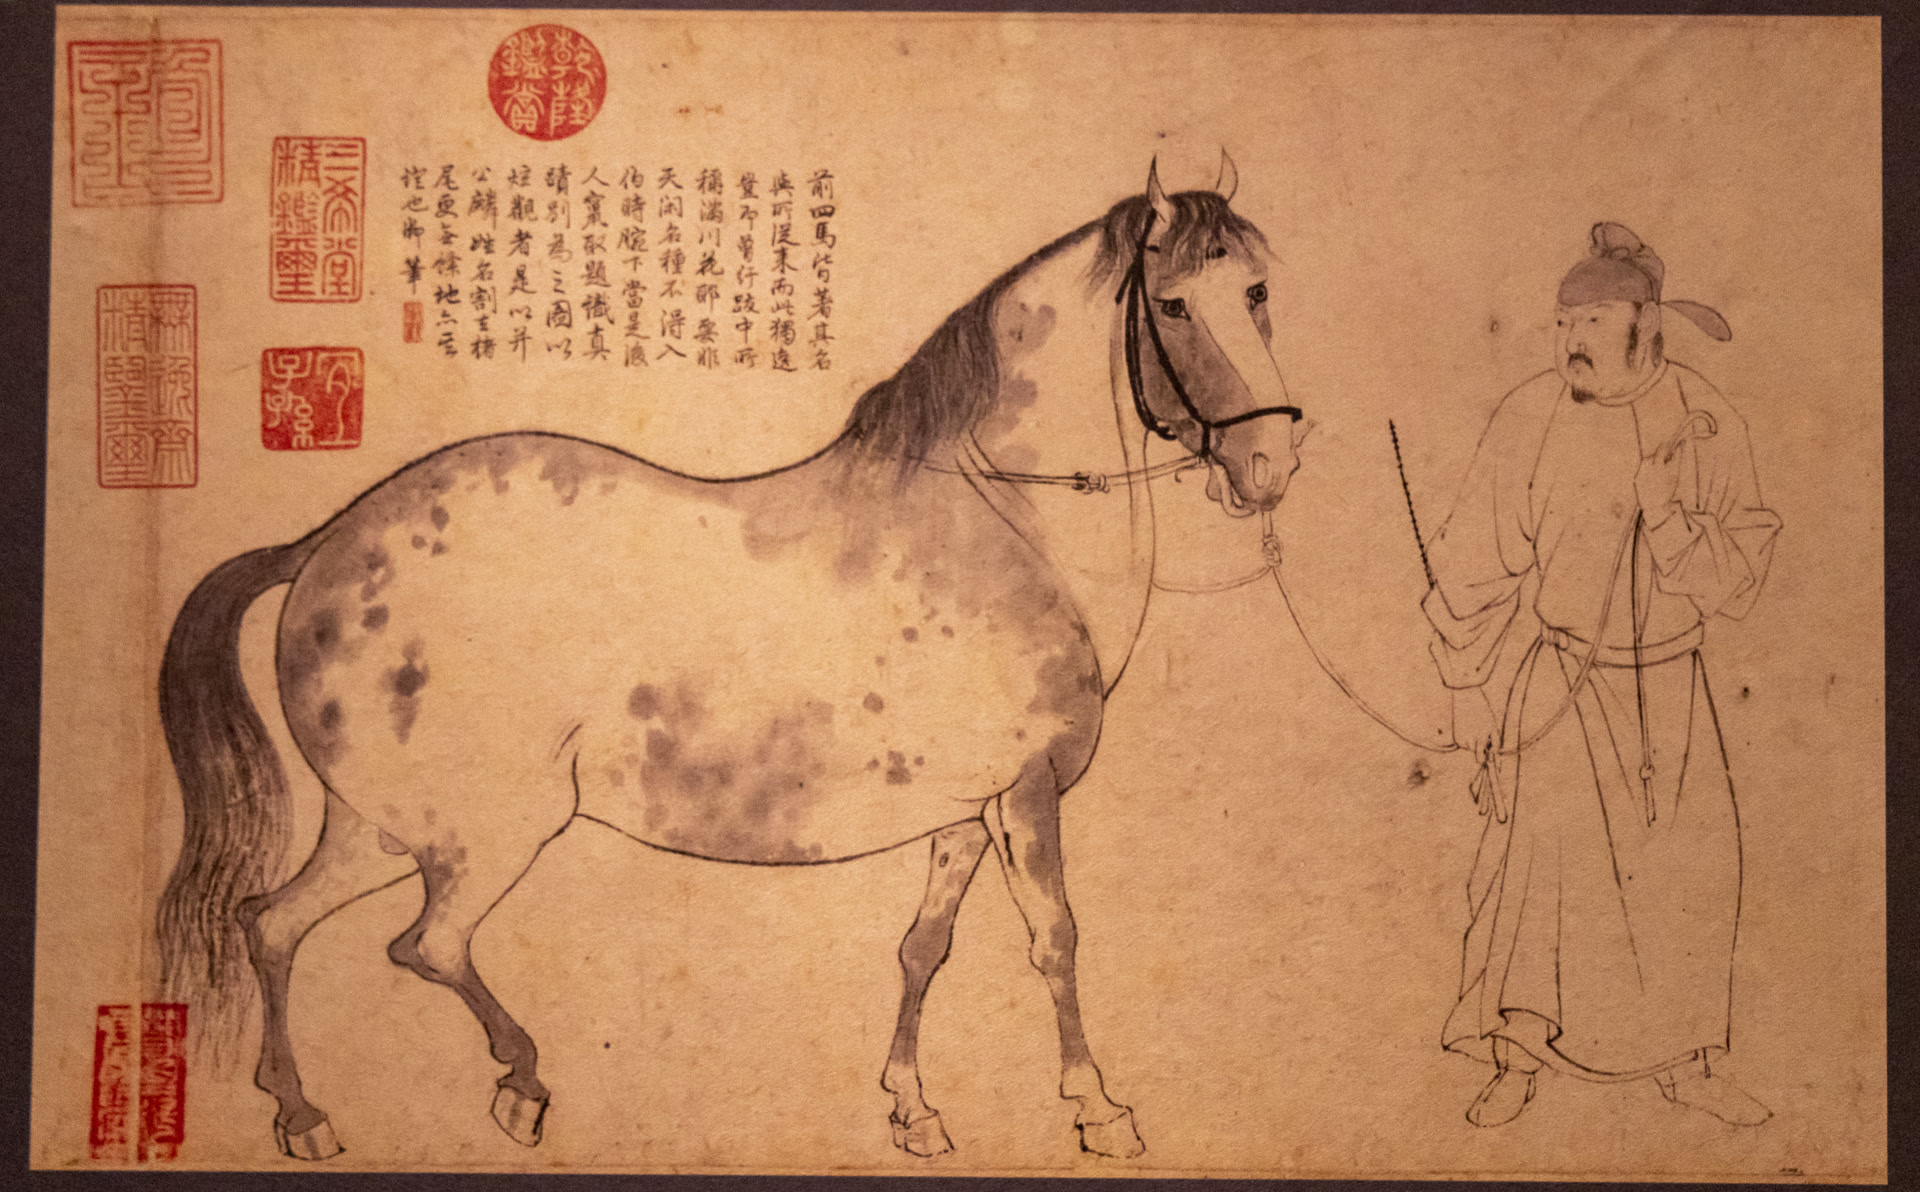 前四馬皆著其名
與所從來而此獨逸
豈即曾紆跋中所
稱滿川花耶要非
天閑名種不得入
伯時腕下當是後
人竄取題識真
蹟別為之圖以
炫觀者是以并
公麟姓名割去楮
尾更無餘地亦可
證也御筆
乾隆
鑑賞
三希堂
精鑑璽
宜
子孫
無逸齋
精鑒璽